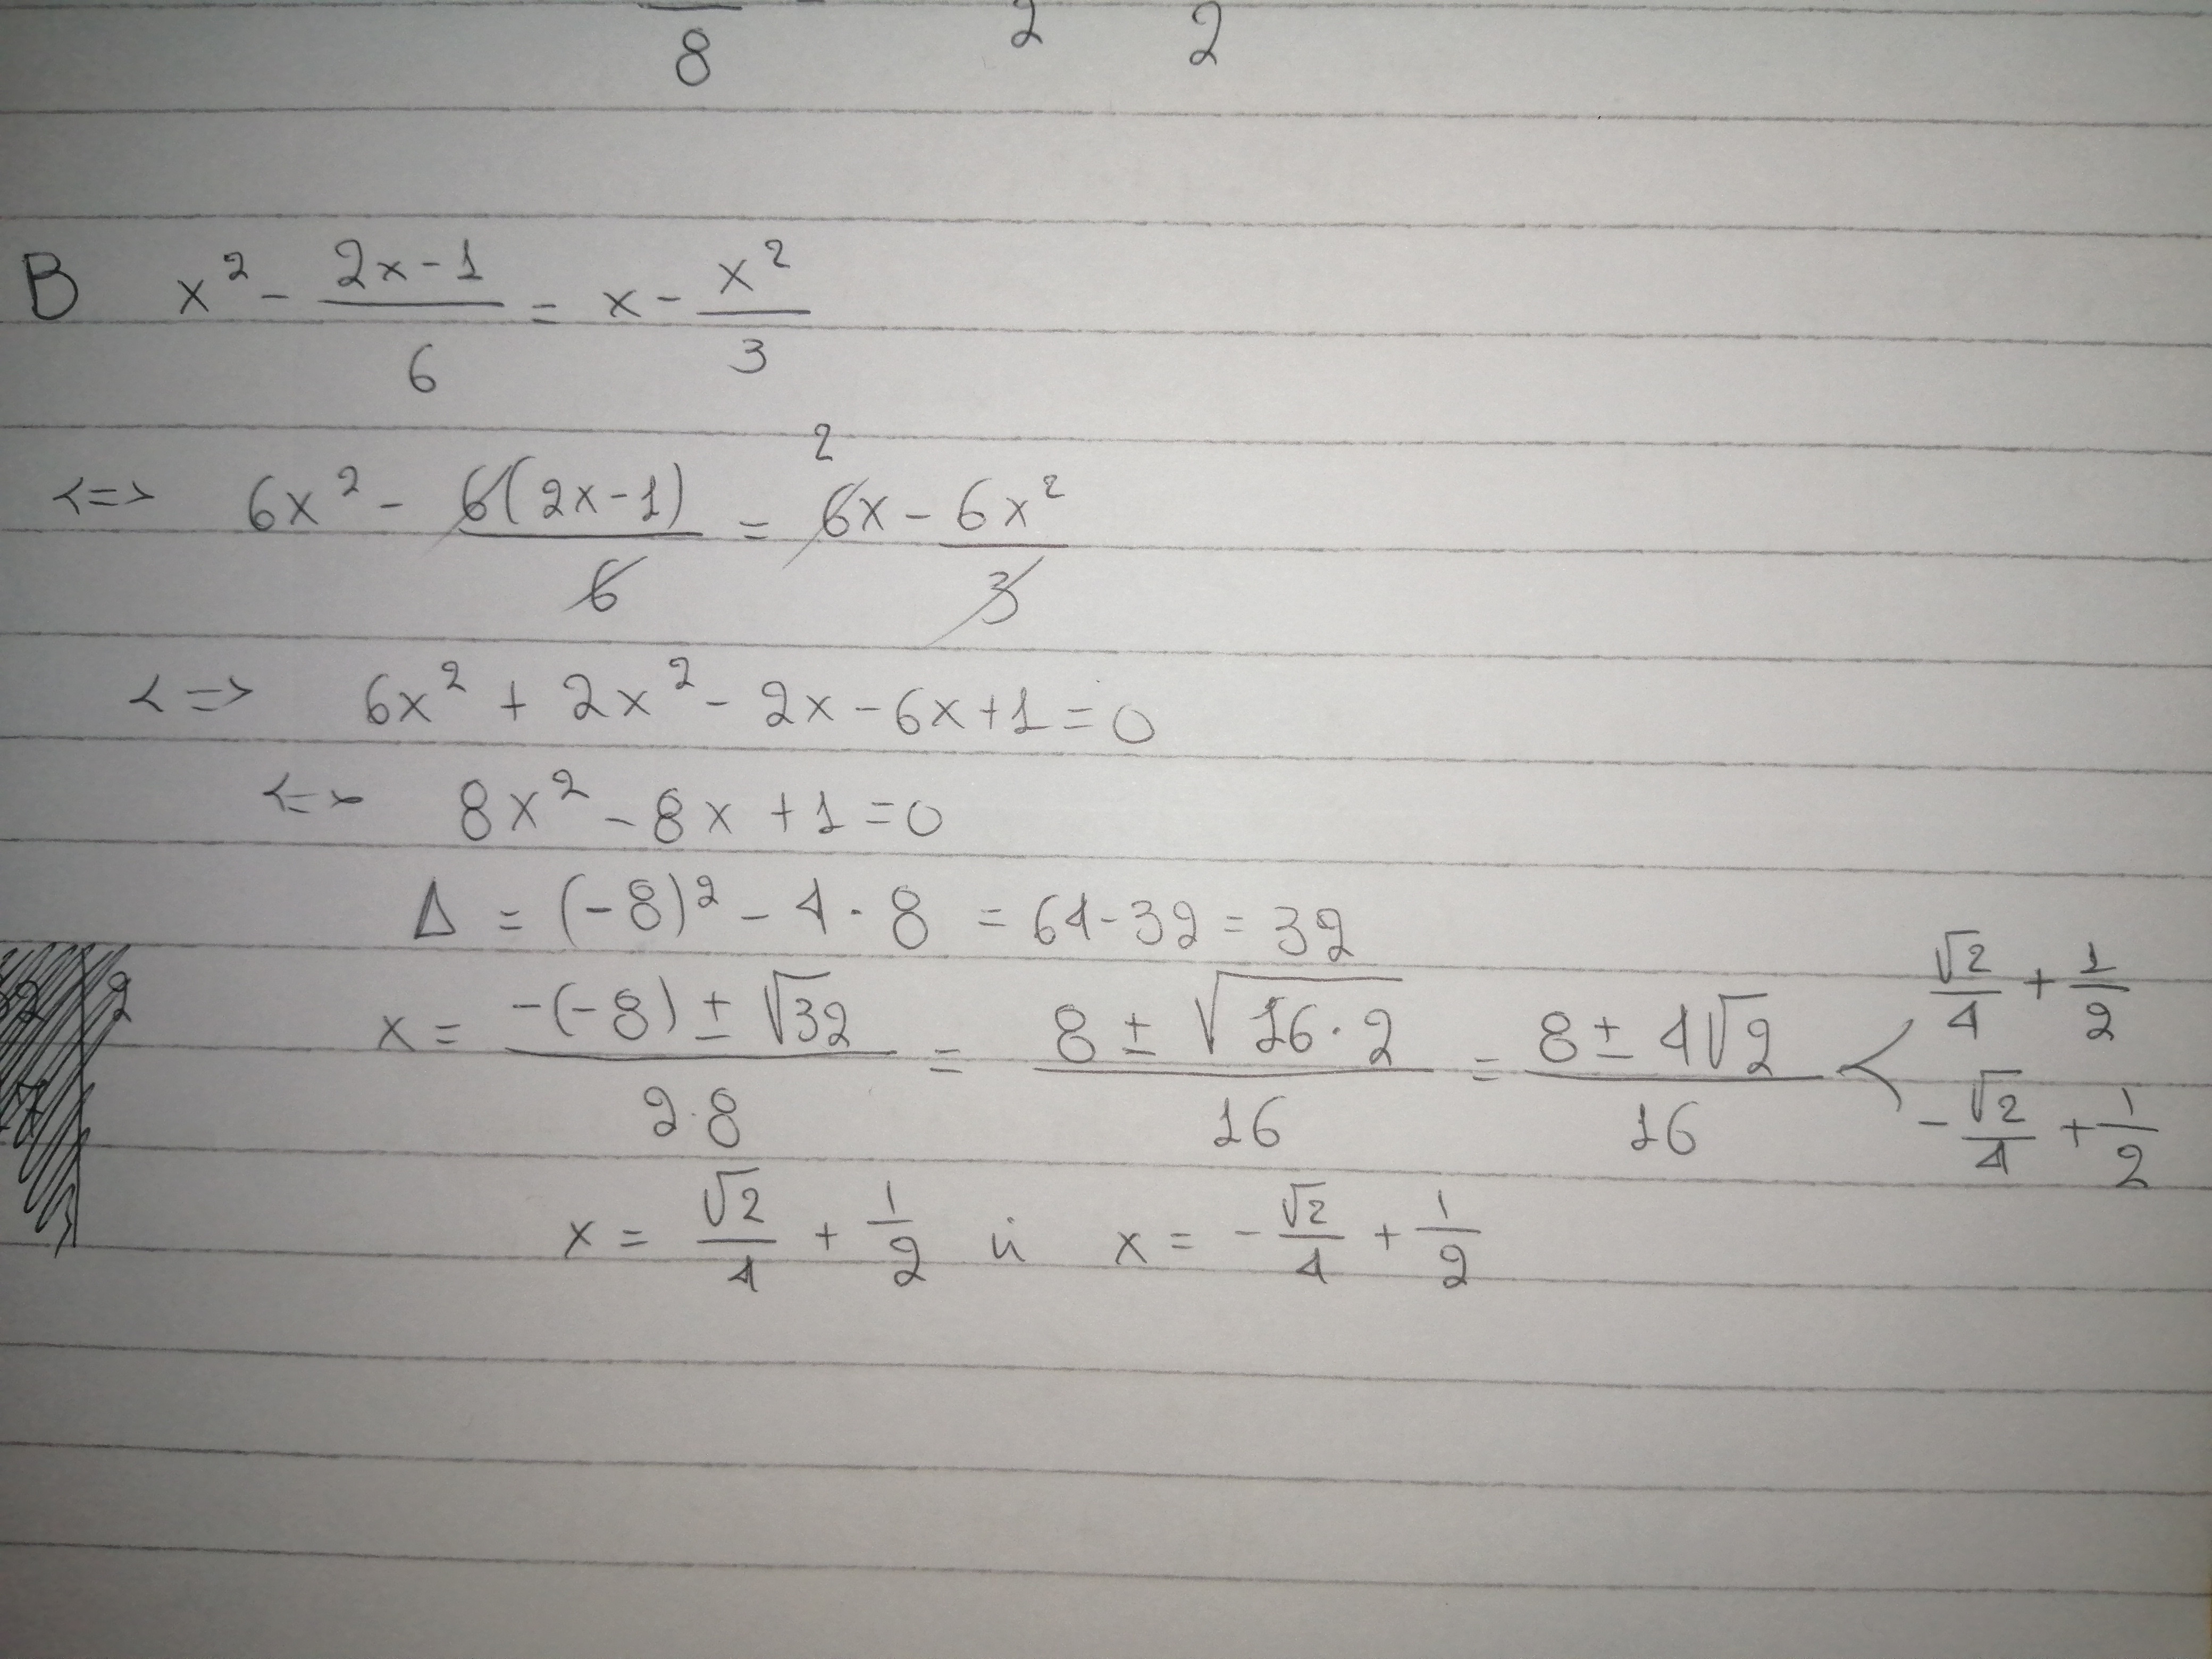 8 2 2
B x² - (2x-1)/6 = x - x²/3
<=> 6x² - 6(2x-1)/6 = ²6x - 6x²/3
<=> 6x² + 2x² - 2x - 6x + 1 = 0
<=> 8x² - 8x + 1 = 0
Δ = (-8)² - 4·8 = 64-32 = 32
x = (-(-8) ± √32)/(2·8) = (8 ± √(16·2))/16 = (8 ± 4√2)/16 < √2/4 + 1/2
-√2/4 + 1/2
x = √2/4 + 1/2 ή x = -√2/4 + 1/2